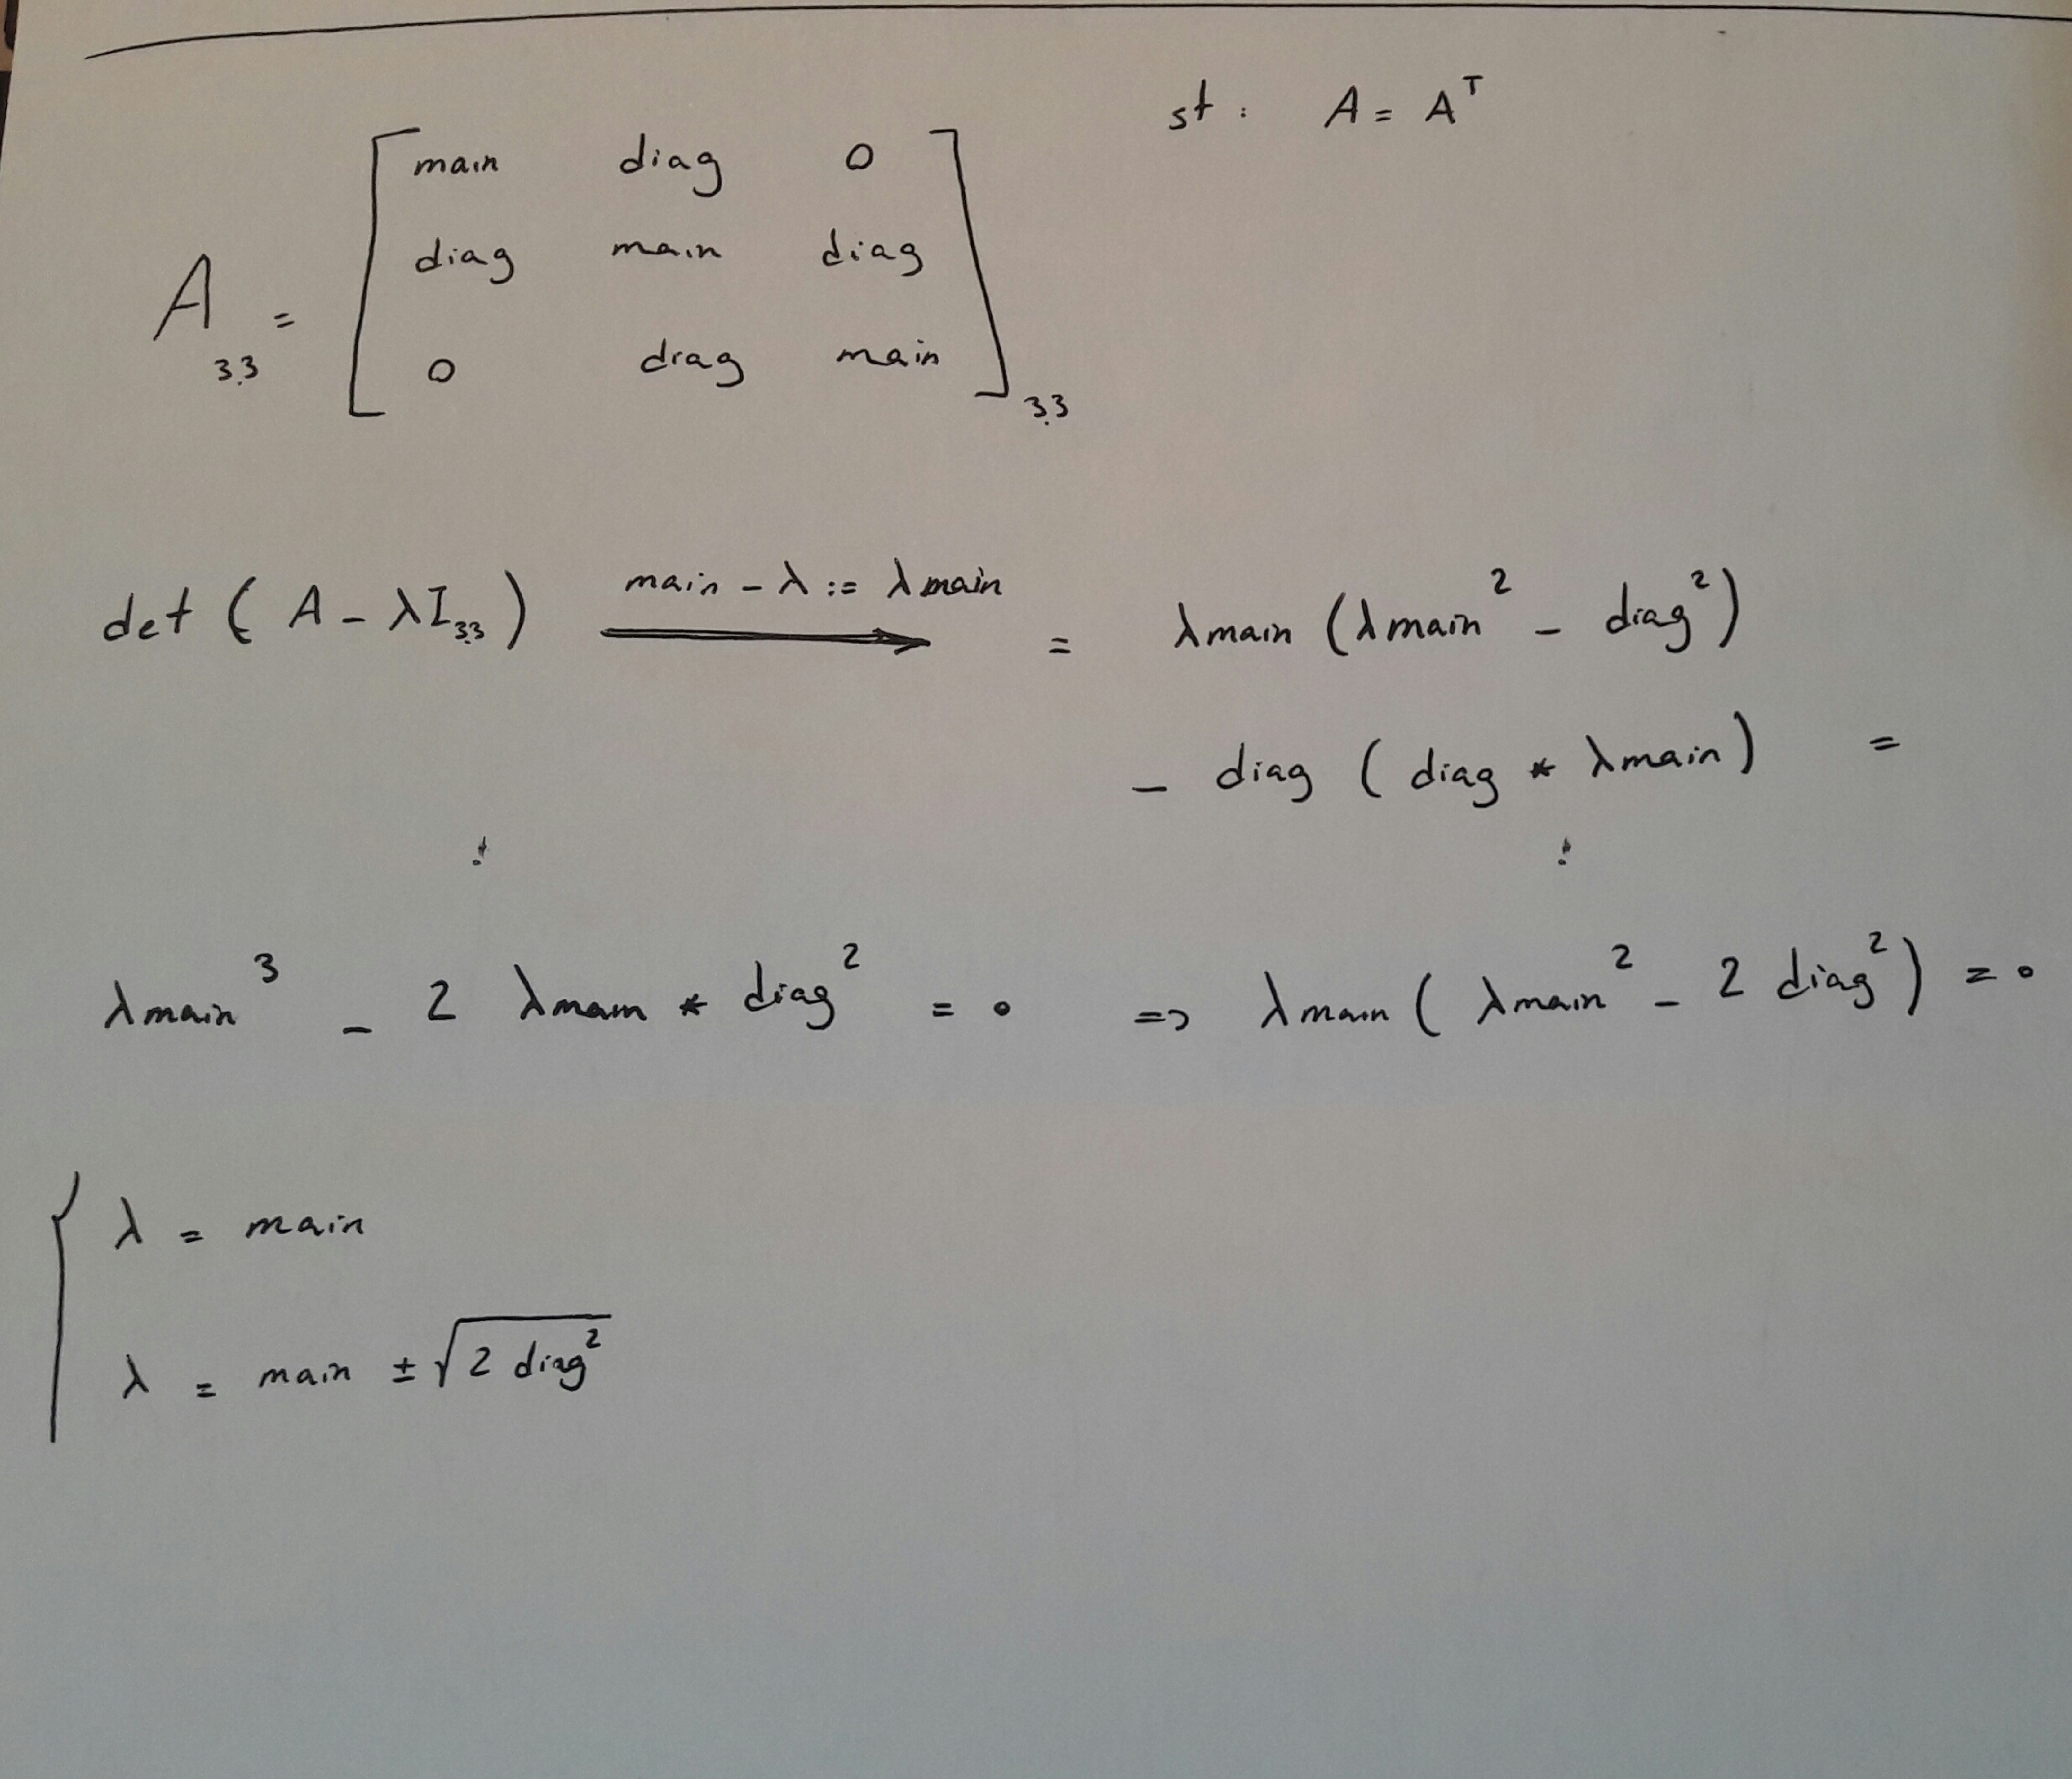 st: A = Aᵀ
A₃.₃ = [ main diag 0
diag main diag
0 diag main ]₃.₃
det ( A - λI₃.₃ ) main - λ := λmain ⟶ = λmain (λmain² - diag²)
- diag ( diag * λmain ) =
λmain³ - 2 λmain * diag² = 0 => λmain ( λmain² - 2 diag² ) = 0
{ λ = main
λ = main ± √2 diag²